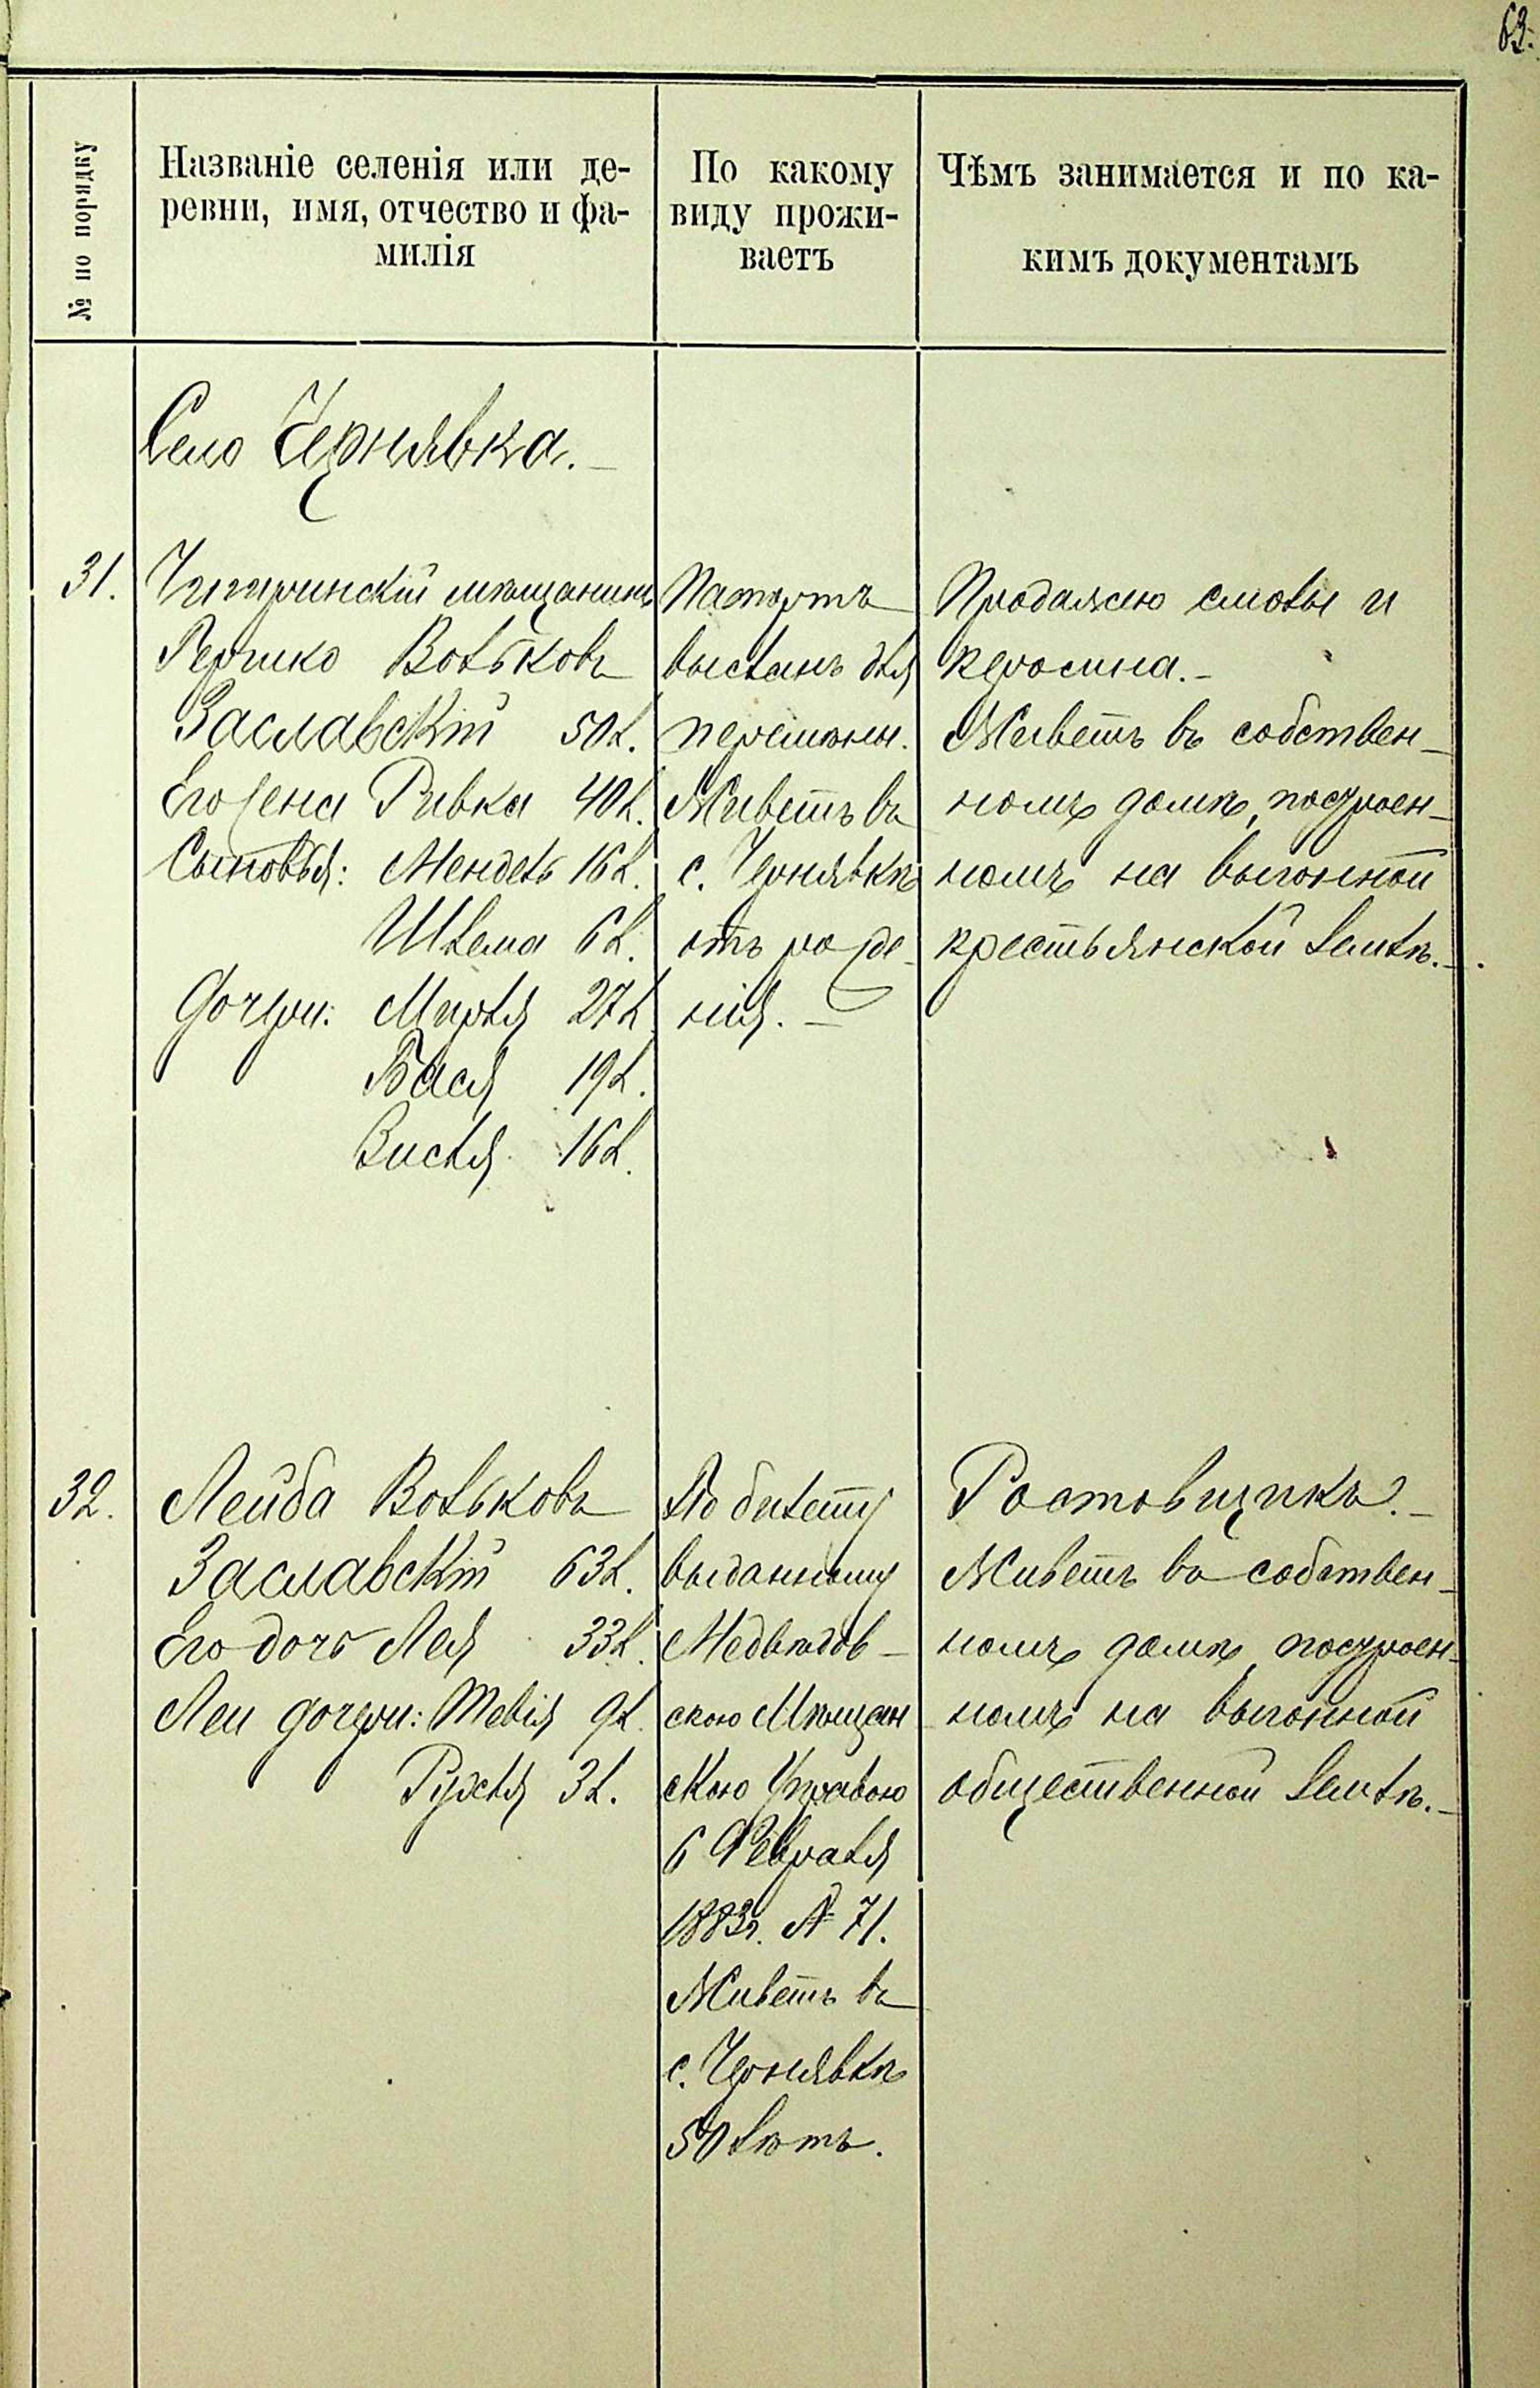 63.
№ по порядку
Названіе селенія или де-
ревни, имя, отчество и фа-
милія
По какому
виду прожи-
ваетъ
Чѣмъ занимается и по ка-
кимъ документамъ
Село Чернявка.
31.
Чигиринскій мѣщанинъ
Гершко Вольковъ
Заславскій 50 л.
Его жена Ривка 40 л.
Сыновья: Мендель 16 л.
Шлема 6 л.
Дочери: Мирля 27 л.
Бася 19 л.
Висля 16 л.
Паспортъ
высланъ для
перемѣны.
Живетъ въ
с. Чернявкѣ
отъ рожде-
нія.
Продажею смолы и
керосина.
Живетъ въ собствен-
номъ домѣ, построен-
номъ на выгонной
крестьянской землѣ.
32.
Лейба Вольковъ
Заславскій 63 л.
Его дочь Лея 33 л.
Леи дочери: Тевія 9 л.
Рухля 3 л.
По билету
выданному
Медвѣдов-
скою Мѣщан
скою Управою
6 Февраля
1883 г. № 71.
Живетъ въ
с. Чернявкѣ
50 лѣтъ.
Ростовщикъ.
Живетъ въ собствен-
номъ домѣ, построен-
номъ на выгонной
общественной землѣ.